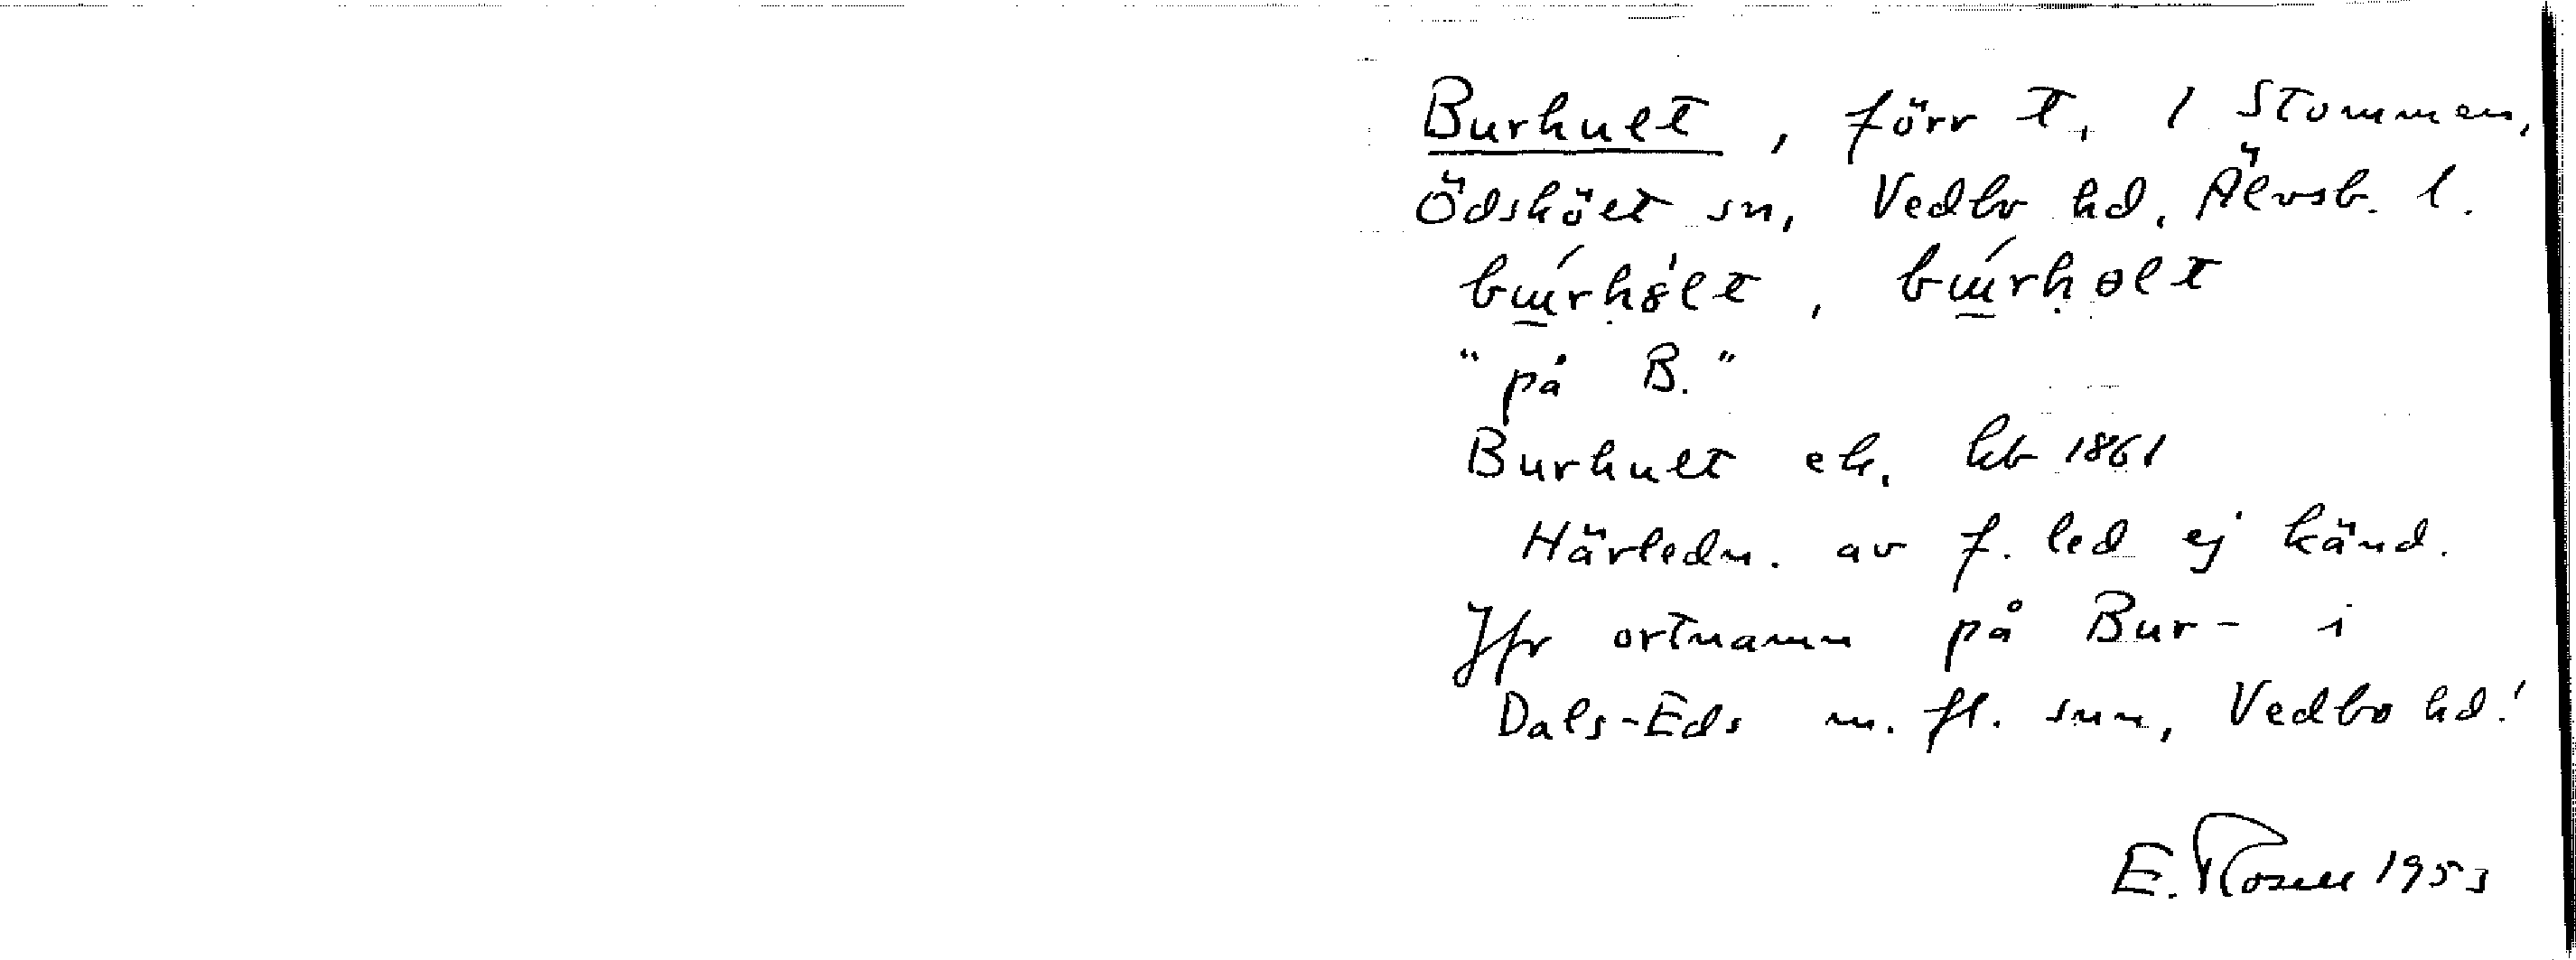 Burhult, förr t. 1 Stommen,
Ödskölt sn, Vedbo hd. Älvsb. l.
"på B."
Burhult ek. hb 1861
Härledn. av f. led ej känd.
Jfr ortnamn på Bur- i
Dals-Eds m. fl. snn, Vedbo hd!
E. Rosell 1953